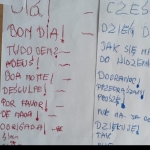 OLÁ!
BOM DIA!
TUDO BEM?
ADEUS!
BOA NOITE!
DESCULPE!
POR FAVOR!
DE NADA!
OBRIGADA!
SIM
CZEŚ
DZIEŃ D
JAK SIĘ MA
DO WIDZEN
DOBRANOC!
PRZEPRASZAM
PROSZĘ!
NIE MA ZA
DZIĘKUJĘ!
TAK